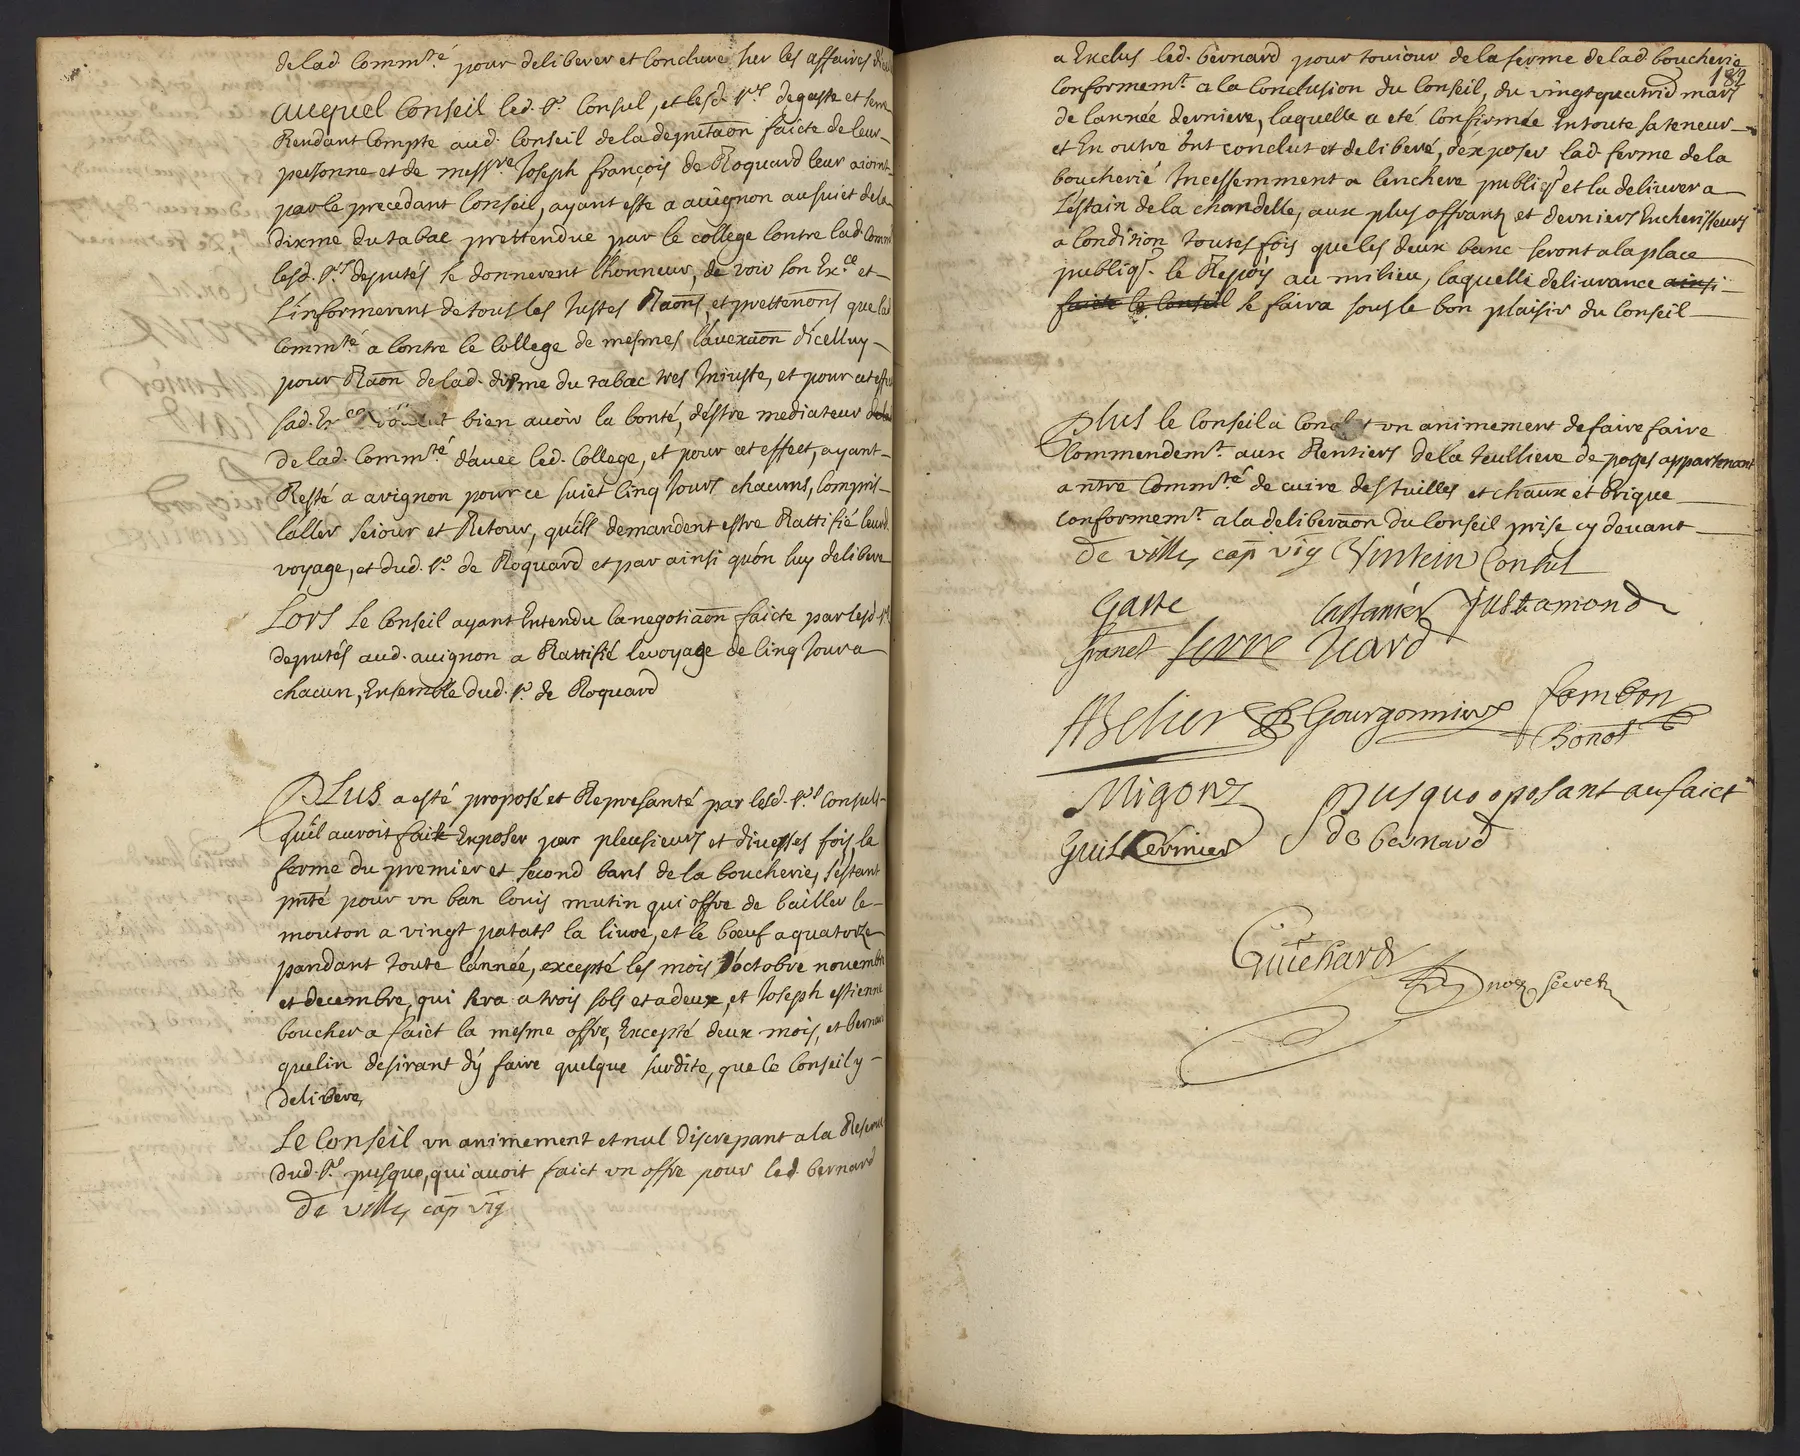 delad. Comm.té pour deliberer et Conclure sur les affaires d'i
auquel Conseil led. S.r Consul, et lesd. S.rs degaste et serre
Rendant Compte aud. Conseil de la deputaôn faicte de leur
personne et de mess.re Joseph françois de Roquard leur aioint
par le precedant Conseil, ayant esté a auignon au suiet de la
dixme du tabac prettendue par le college Contre lad. Comm
lesd. S.rs deputés se donnerent l'honneur, de voir son Ex.ce et
L'informerent de tous les Justes Raôns, et prettenôns que lad
Comm.té a Contre le College de mesmes, la vexaôn d'icelluy
pour Raôn delad. dixme du tabac tres Iniuste, et pour cet effet
sad. Ex.ce bien auoir la bonté, d'estre mediateur
de lad. Comm.té d'auec led. College, et pour cet effect, ayant
Resté a avignon pour ce suiet Cinq Jours chacuns, Compris
l'aller seiour et Retour, qu'ils demandent estre Rattifié leurd.
voyage, et dud. S.r de Roquard et par ainsi qu'on luy delibere
Lors le Conseil ayant Entendu la negotiaôn faicte par lesd. S.rs
deputés aud. auignon a Rattifié le voyage de Cinq Jours a
chacun, Ensemble dud. S.r de Roquard
PLus a esté proposé et Represanté par lesd. S.rs Consuls
qu'il auroit faict Exposer par pleusieurs et diuerses fois, le
ferme du premier et second bans de la boucherie, s'estant
pnté pour vn ban louis mutin qui offre de bailler le
mouton a vingt patats la liure, et le bœuf a quatorze
pandant toute l'année, excepté les mois d'octobre nouembre
et decembre, qui sera a trois sols et a deux, et Joseph estienne
boucher a faict la mesme offre, Excepté deux mois, et bernard
quelin desirant d'y faire quelque surdite, que le Conseil y
delibere,
Le Conseil vn animement et nul discrepant a la Reserue
dud. S.r pusquo, qui auoit faict vn offre pour led. bernard
De ville, cap̃ vig̃
182
a Exclus led. bernard pour touiour de la ferme de lad boucherie
Conformem.t a la Conclusion du Conseil, du vingt quatrie mars
de l'année derniere, laquelle a eté Confirmée En toute sa teneur
et En outre ont conclut et deliberé, d'exposer lad. ferme de la
boucherie Incessemment a l'enchere publiq. et la deliurer a
L'estain de la chandelle, aux plus offrant et derniers Encherisseurs
a Condition toutesfois que les deux banc seront a la place
publiq. le Repos au milieu, laquelle deliurance ainsi
faicte le Conseil se faira sous le bon plaisir du Conseil
Plus le Conseil a vn animement de faire faire
Commendem.t aux Rentiers de la teulliere de poges appartenant
a nr̃e Comm.té de cuire des tuilles et chaux et brique
Conformem.t a la deliberaôn du Conseil prise cy deuant
De ville, cap̃ vig̃ Vintein Consul
Gaste Castanier Justamond
Granet Serre Icard
ABelier Gourgonnier Lambon
Bonot
Migon Pusquo oposant au faict
de bernard
Guillermier
Guichard not. secret.